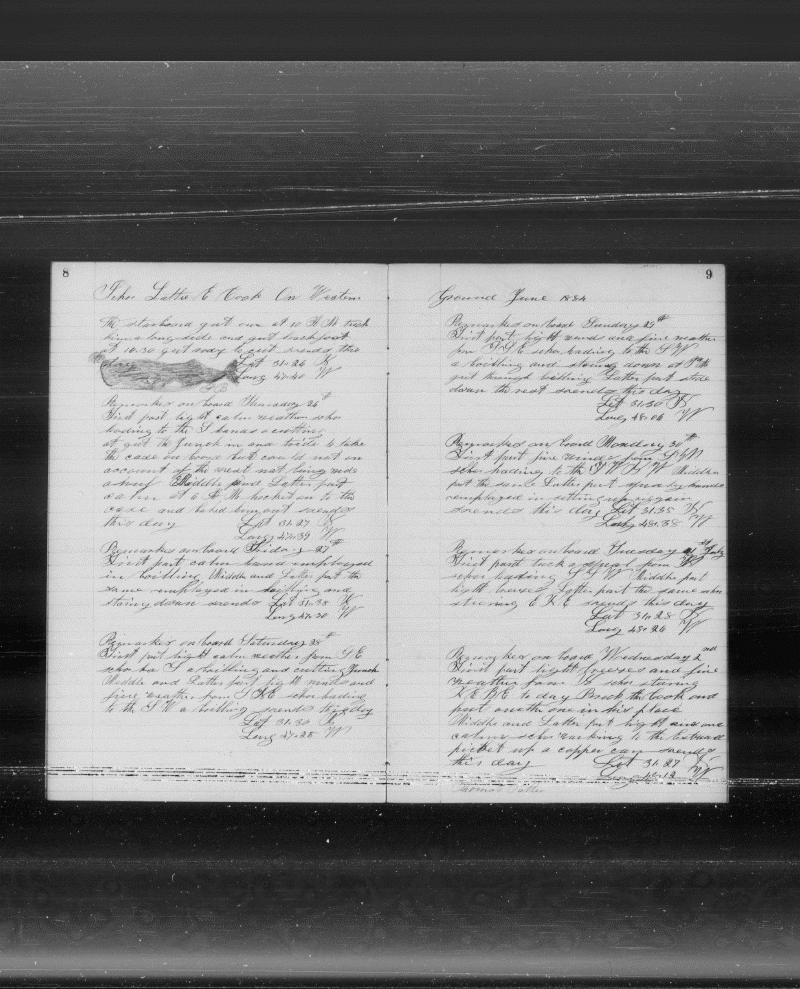 8
Schr Lottie E Cook On Western
The starboard gut one at 10 A M took
him a long side and got breakfast
at 10.30 got ready to cut so ends this
day Lat 31.24 N
Long 47.40 W
Remarkes on board Thursday 26th
First part light calm weather schr
heading to the S hands a cutting
at got the Junk in and tride to take
the case on board but could not on
account of the west not being
Middle and Latter part
calm at 6 A M hooket on to the
case and bailed him out so ends
this day Lat 31.27 N
Long 47.39 W
Remarkes on board Friday 27th
First part calm hands employed
in boilling Middle and Latter part the
same employed in boilling and
stowing down so ends Lat 31.38 N
Long 47.30 W
Remarkes on board Saturday 28th
First part light calm weather from S E
schr hed S a boilling and cutting Junk
Middle and Latter part light winds and
fine weather from S & E schr heading
to the S W a boilling so ends this day
Lat 31.30 N
Long 47.25 W
9
Ground June 1884
Remarkes on board Sunday 29th
First part light wind and fine weather
from S E schr heading to the S W
a boilling and stowing down at
got through boilling Latter part stode
down the rest so ends this day
Lat 31.30 N
Long 48.06 W
Remarkes on board Monday 30th
First part fine winds from
schr heading to the Middle
part the same Latter part squaly hands
employed in setting up
so ends this day Lat 31.35 N
Long 48.38 W
Remarkes on board Tuesday 1st July
First part took a squal from
schr heading Middle part
light breeses Latter part the same schr
stearing so ends this day
Lat 31.28 N
Long 48.24 W
Remarkes on board Wednesday 2nd
First part light breeses and fine
weather from schr staring
to day Broek the Cook and
poot another one in his place
Middle and Latter part light airs and
calms schr working to the Estward
picket up a copper can so ends
this day Lat 31.27 N
Long 12 W
Thomas